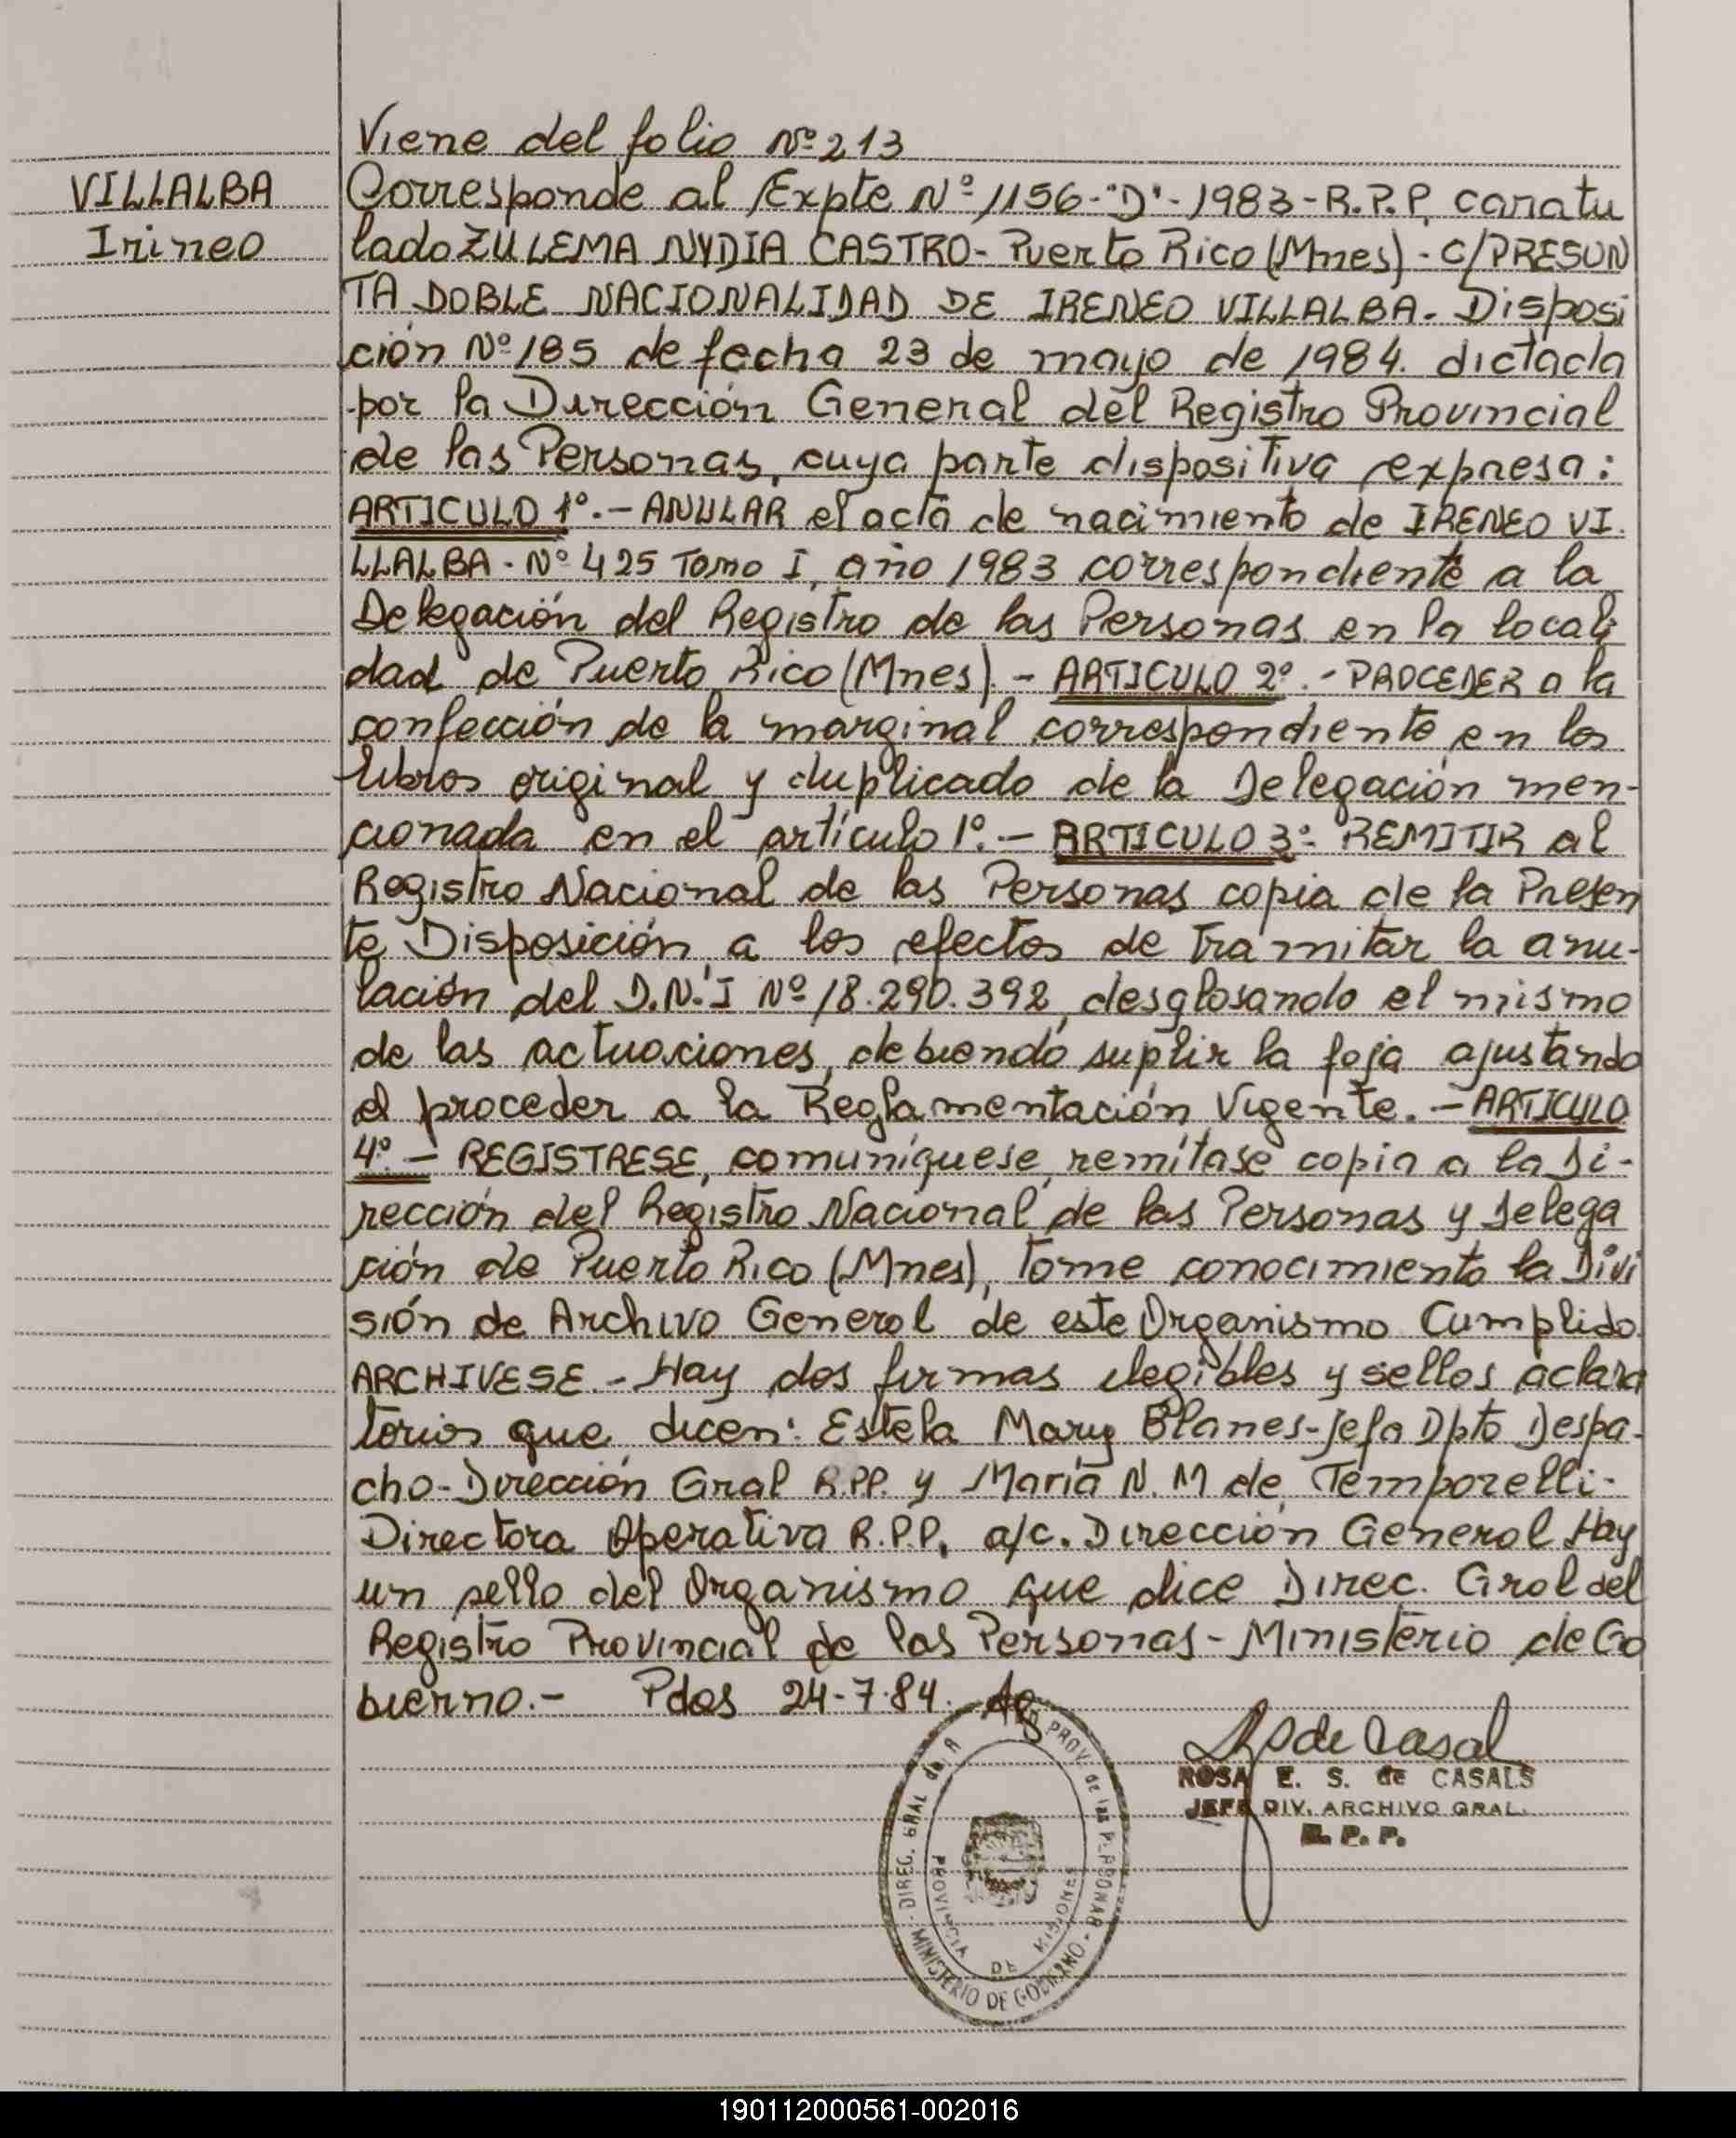 Viene del folio Nº 213
VILLALBA
Irineo
Corresponde al Expte Nº 1156-"D"-1983-R.P.P, caratu
lado ZULEMA NYDIA CASTRO- Puerto Rico (Mnes) - C/PRESUN
TA DOBLE NACIONALIDAD DE IRENEO VILLALBA. Disposi
ción Nº 185 de fecha 23 de mayo de 1984. dictada
por la Dirección General del Registro Provincial
de las Personas, cuya parte dispositiva expresa:
ARTICULO 1º.- ANULAR el acta de nacimiento de IRENEO VI.
LLALBA - Nº 425 Tomo I, año 1983 correspondiente a la
Delegación del Registro de las Personas en la locali
dad de Puerto Rico (Mnes). - ARTICULO 2º.- PROCEDER a la
confección de la marginal correspondiente en los
libros original y duplicado de la Delegación men-
cionada en el artículo 1º.- ARTICULO 3º- REMITIR al
Registro Nacional de las Personas copia de la Presen
te Disposición, a los efectos de tramitar la anu-
lación del D.N.I Nº 18.290.392, desglosando el mismo
de las actuaciones, debiendo suplir la foja ajustando
el proceder a la Reglamentación Vigente. - ARTICULO
4º.- REGISTRESE, comuníquese, remítase copia a la Di-
rección del Registro Nacional de las Personas y Delega
ción de Puerto Rico (Mnes), tome conocimiento la Divi
sión de Archivo General de este Organismo Cumplido.
ARCHIVESE. - Hay dos firmas ilegibles y sellos aclara
torios que dicen: Estela Mary Blanes-Jefa Dpto Despa-
cho-Dirección Gral R.P.P. y María N. M de Temporelli-
Directora Operativa R.P.P. a/c. Dirección General Hay
un sello del Organismo que dice Direc. Gral del
Registro Provincial de las Personas - Ministerio de Go
bierno.- Pdas 24-7-84.
DIREC. GRAL PROV. de las PERSONAS - MINISTERIO DE GOBIERNO -
PROVINCIA DE MISIONES
de Casal
ROSA E. S. de CASALS
JEFE DIV. ARCHIVO GRAL.
R. P. P.
190112000561-002016